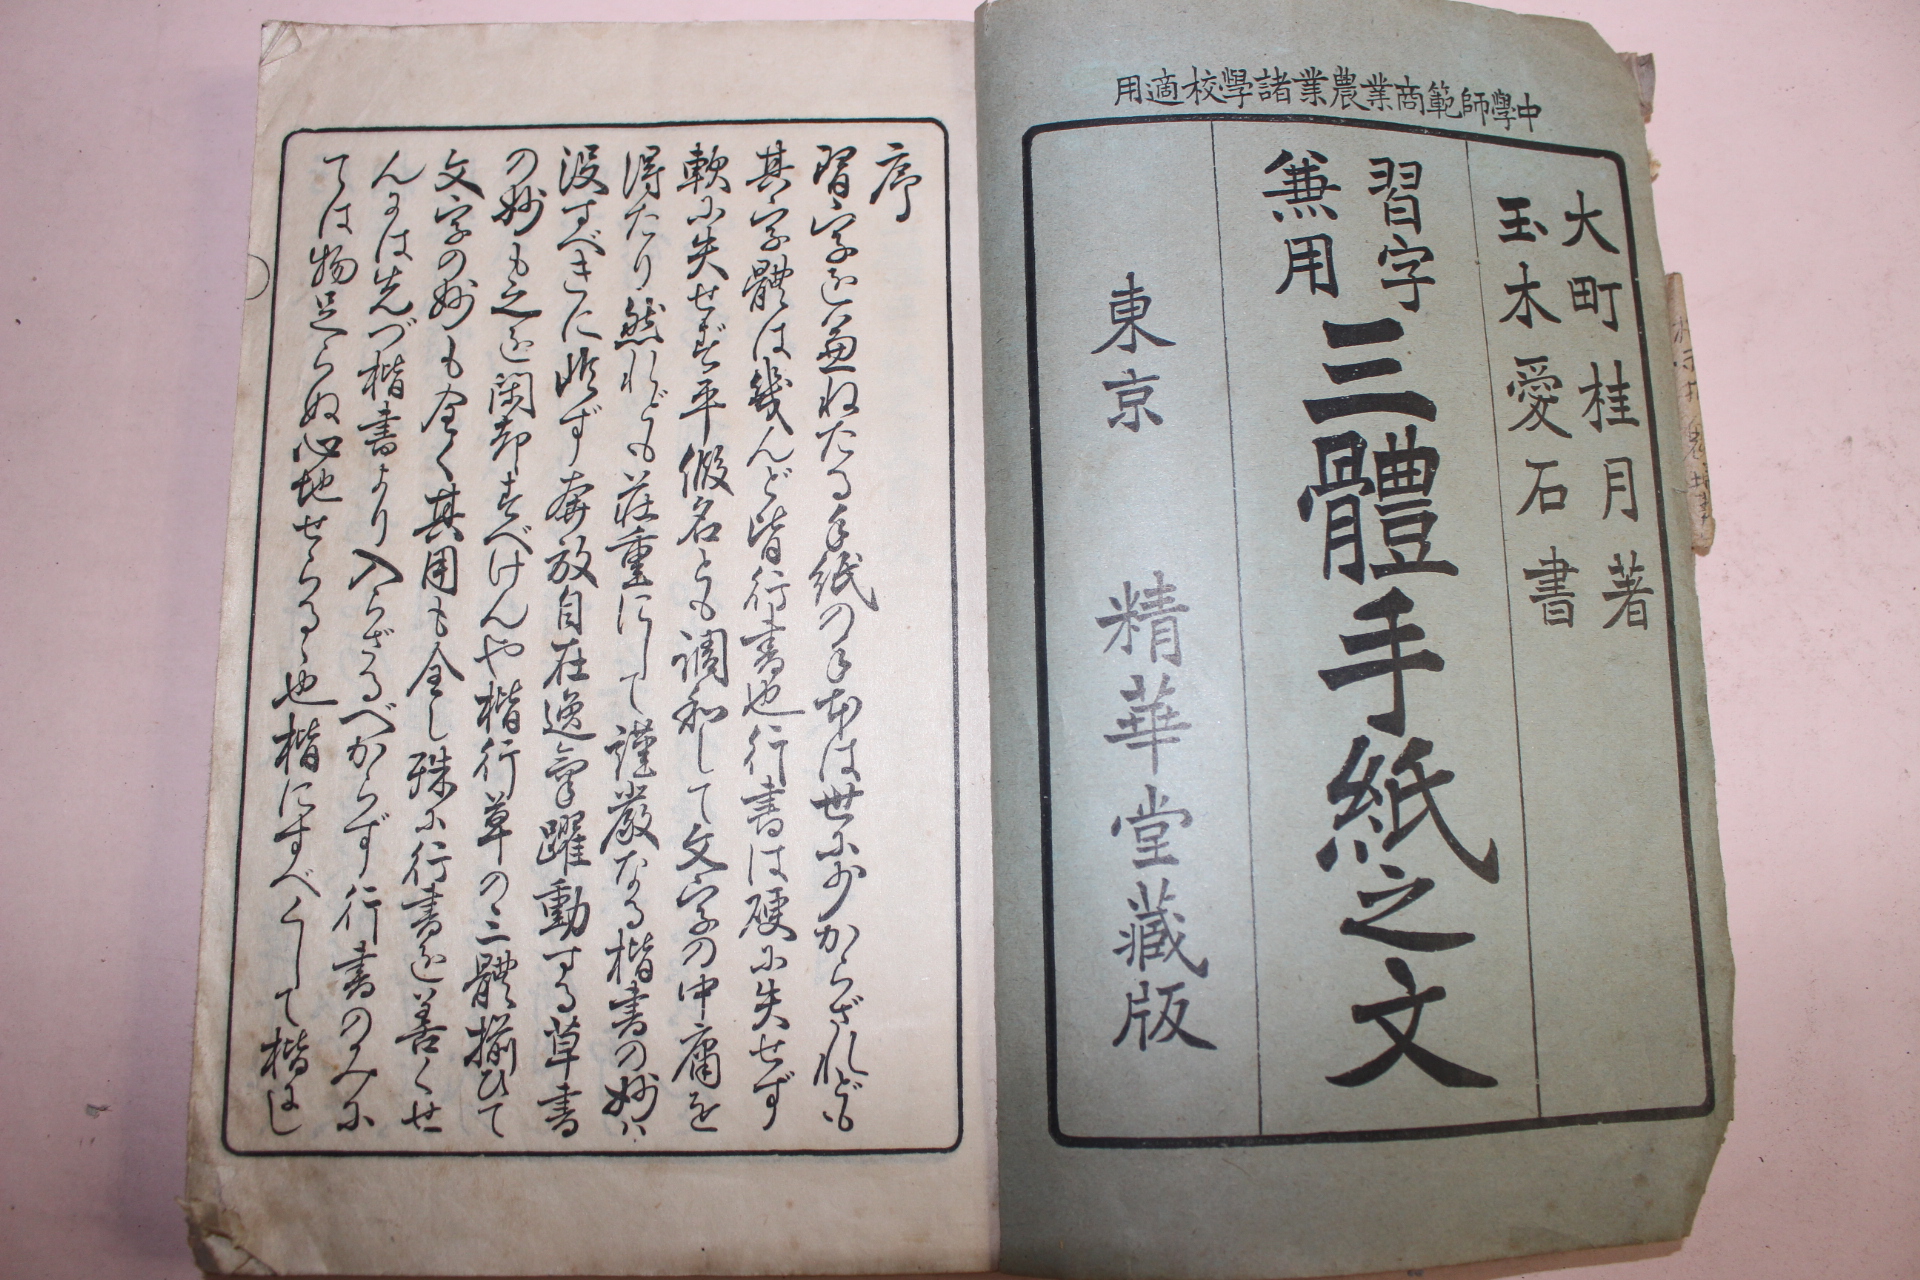 中學師範商業農業諸學校適用
大町桂月著
玉木愛石書
習字
兼用
三體手紙之文
東京 精華堂藏版
序
習字を兼ねたる手紙の手本は世に少からざれども
其字體は幾んど皆行書也行書は硬に失せず
軟に失せず平假名とも調和して文字の中庸を
得たり然れども荘重にして謹嚴なる楷書の妙は
没すべきに非ず奔放自在逸氣躍動する草書
の妙も之を閑却すべけんや楷行草の三體揃ひて
文字の妙も全く其用も全し殊に行書を善くせ
んには先づ楷書より入らざるべからず行書のみに
ては物足らぬ心地せらるゝ也楷にすべくして楷にし